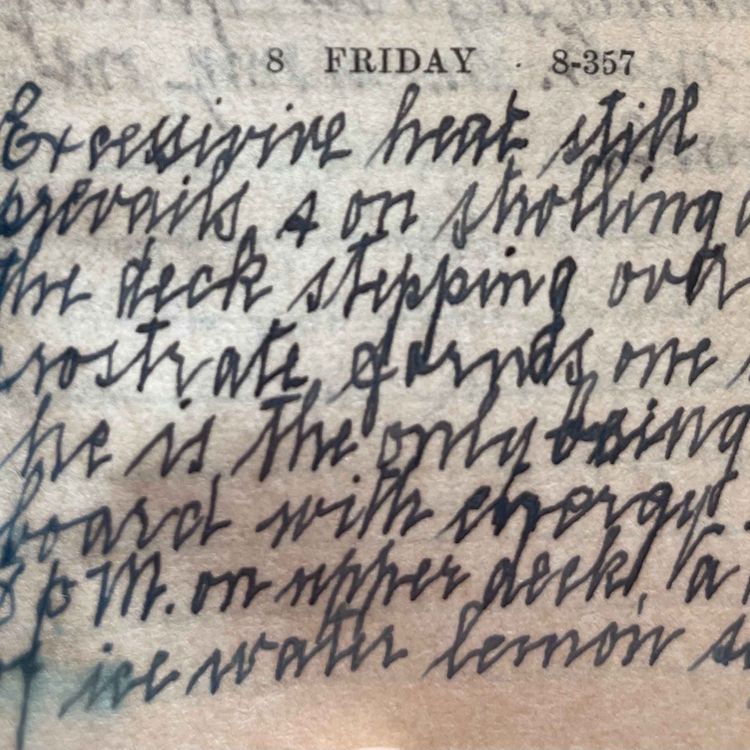 8 FRIDAY 8-357
Excessivive heat still
prevails, & on strolling
the deck stepping over
prostrate forms, one
he is the only being
board with energy
8 p M. on upper deck, a
of ice water lemon